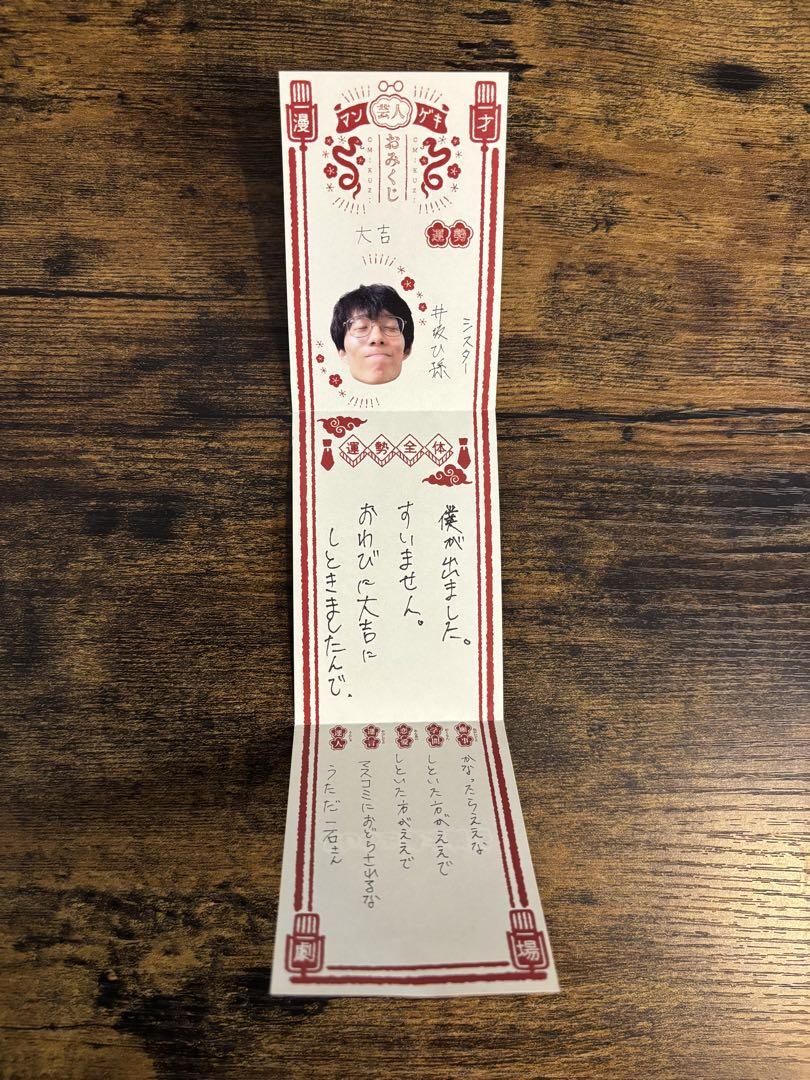 漫才
マンゲキ
芸人
おみくじ
OMIKUZI
OMIKUZI
運勢
大吉
シスター
井坂ひ孫
運勢全体
僕が出ました。
すいません。
おわびに大吉に
しときましたんで。
願事
かなったらええな
学問
しといた方がええで
恋愛
しといた方がええで
運言
マスコミにおどらされるな
運人
うただ一石さん
劇場